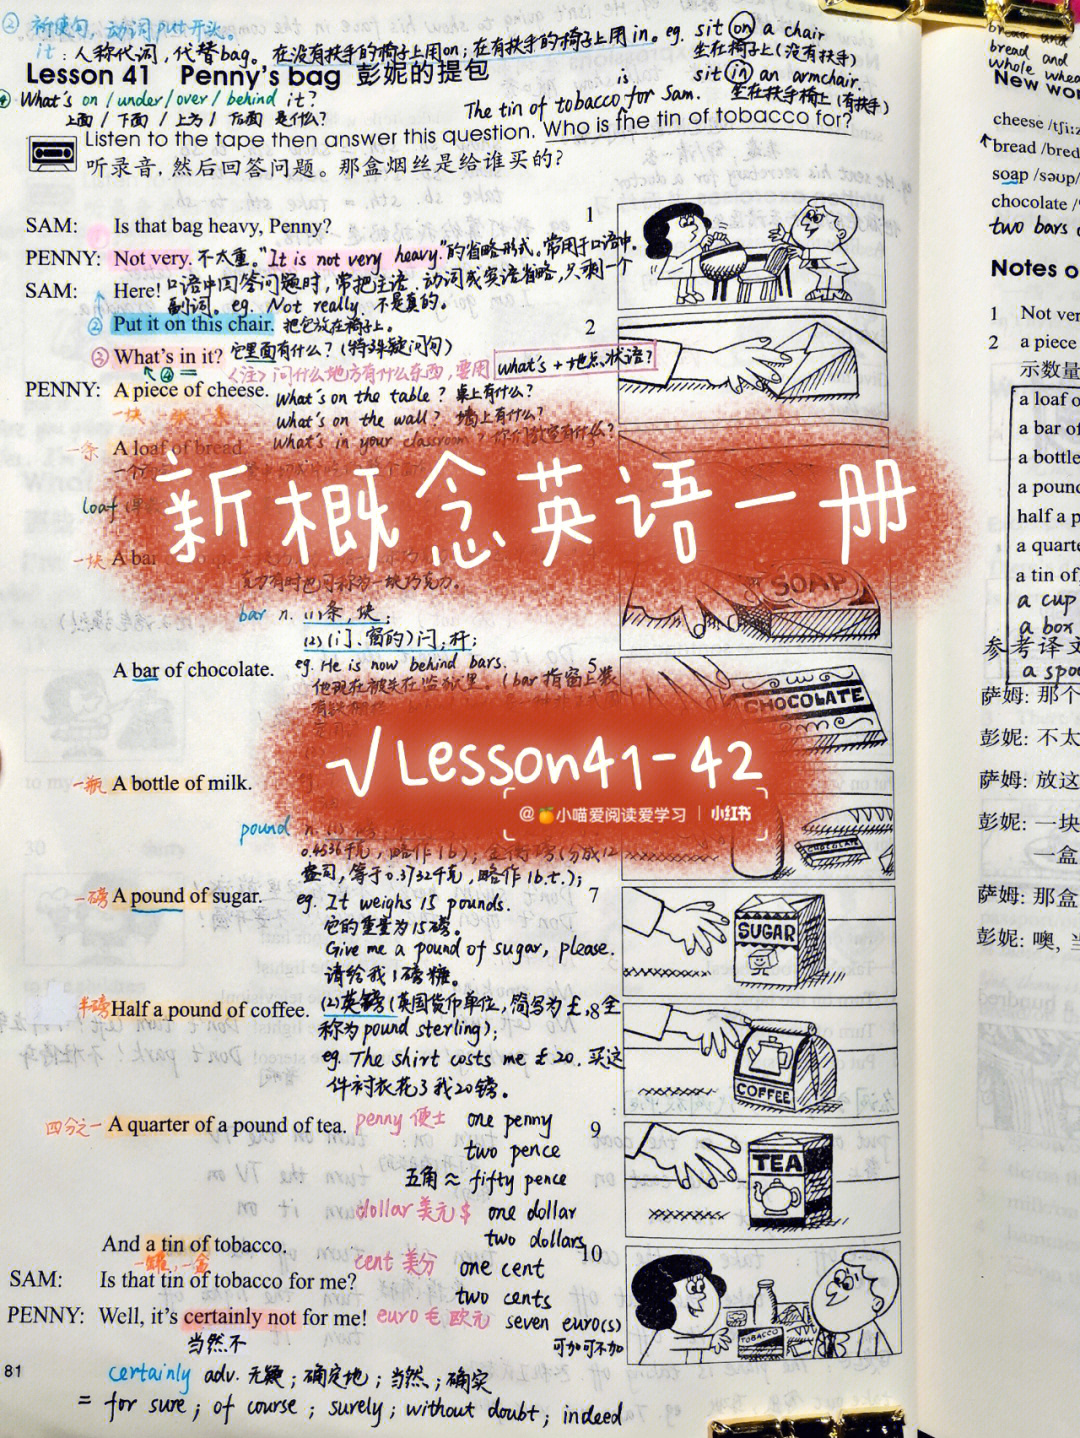 ② 祈使句，动词put开头。
it：人称代词，代替bag。在没有扶手的椅子上用on；在有扶手的椅子上用in。eg. sit on a chair
坐在椅子上（没有扶手）
Lesson 41 Penny's bag 彭妮的提包
sit in an armchair.
坐在扶手椅上（有扶手）
④ What's on / under / over / behind it?
上面 / 下面 / 上方 / 后面 是什么?
The tin of tobacco is for Sam.
Listen to the tape then answer this question. Who is the tin of tobacco for?
听录音，然后回答问题。那盒烟丝是给谁买的?
SAM: Is that bag heavy, Penny?
1
PENNY: Not very. 不太重。"It is not very heavy."的省略形式。常用于口语中。
SAM: Here! 口语中回答问题时，常把主语、动词或宾语省略，只剩一个
副词。eg. Not really. 不是真的。
② Put it on this chair. 把包放在椅子上。
2
③ What's in it? 它里面有什么?（特殊疑问句）
④
〈注〉问什么地方有什么东西，要用 what's + 地点状语?
PENNY: A piece of cheese. What's on the table? 桌上有什么?
一块
What's on the wall? 墙上有什么?
一条 A loaf of bread. What's in your classroom? 你们教室有什么?
loaf
新概念英语一册
一块 A bar
克力有时也可称为一块巧克力。
SOAP
bar n. (1)条，块；
(2)(门、窗的)闩，杆；
A bar of chocolate. eg. He is now behind bars. 5
他现在被关在监狱里。(bar指窗上装
CHOCOLATE
√Lesson41-42
@🍊小喵爱阅读爱学习 | 小红书
一瓶 A bottle of milk.
CHOCOLATE
pound
0.4536千克，略作lb)；金衡磅(分成12
盎司，等于0.3732千克，略作lb.t.)；
一磅 A pound of sugar. eg. It weighs 15 pounds. 7
它的重量为15磅。
SUGAR
Give me a pound of sugar, please.
请给我1磅糖。
半磅 Half a pound of coffee. (2)英镑(英国货币单位，简写为£，全 8
称为pound sterling)；
eg. The shirt costs me £20. 买这
件衬衣花了我20镑。
COFFEE
四分之一 A quarter of a pound of tea. penny 便士 one penny 9
two pence
TEA
五角 ≈ fifty pence
dollar 美元 $ one dollar
two dollars
And a tin of tobacco. 10
一罐，一盒 cent 美分 one cent
SAM: Is that tin of tobacco for me? two cents
PENNY: Well, it's certainly not for me! euro 欧元 seven euro(s)
当然不 可加可不加
TOBACCO
81
certainly adv. 无疑；确定地；当然；确实
= for sure; of course; surely; without doubt; indeed
bread and
whole whea
New wor
cheese /tʃi:z
bread /bred
soap /səup/
chocolate /
two bars o
Notes o
1 Not ver
2 a piece
示数量
a loaf o
a bar of
a bottle
a pound
half a p
a quarte
a tin of
a cup
a box
参考译文
a spoo
萨姆: 那个
彭妮: 不太
萨姆: 放这
彭妮: 一块
一盒
萨姆: 那盒
彭妮: 噢，当